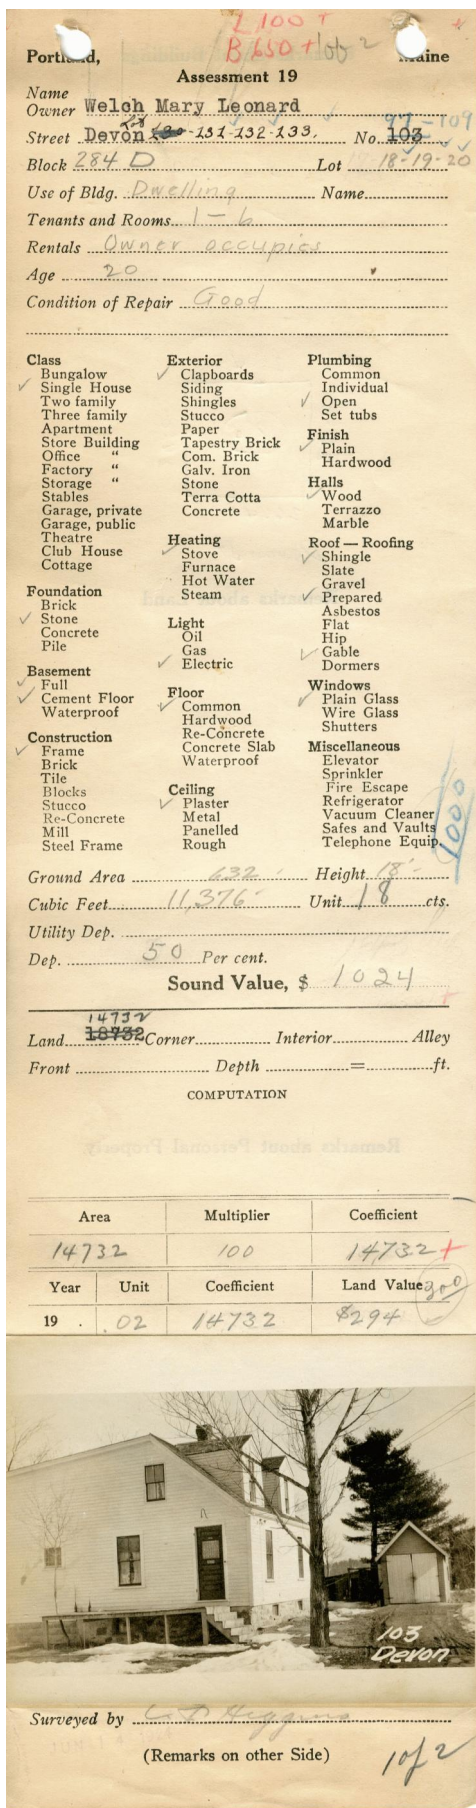 L 100 +
B 650 + 1 of 2
Portland, Maine
Assessment 19
Name
Owner Welch Mary Leonard
97-109
Street Devon Lots 130-131-132-133. No. 103
Block 284 D Lot 18-19-20
Use of Bldg. Dwelling Name
Tenants and Rooms 1 - 6
Rentals Owner occupies
Age 20
Condition of Repair Good
Class
Bungalow
✓ Single House
Two family
Three family
Apartment
Store Building
Office "
Factory "
Storage "
Stables
Garage, private
Garage, public
Theatre
Club House
Cottage
Foundation
Brick
✓ Stone
Concrete
Pile
Basement
✓ Full
✓ Cement Floor
Waterproof
Construction
✓ Frame
Brick
Tile
Blocks
Stucco
Re-Concrete
Mill
Steel Frame
Exterior
✓ Clapboards
Siding
Shingles
Stucco
Paper
Tapestry Brick
Com. Brick
Galv. Iron
Stone
Terra Cotta
Concrete
Heating
✓ Stove
Furnace
Hot Water
Steam
Light
Oil
Gas
✓ Electric
Floor
✓ Common
Hardwood
Re-Concrete
Concrete Slab
Waterproof
Ceiling
✓ Plaster
Metal
Panelled
Rough
Plumbing
Common
Individual
✓ Open
Set tubs
Finish
✓ Plain
Hardwood
Halls
✓ Wood
Terrazzo
Marble
Roof — Roofing
✓ Shingle
Slate
Gravel
✓ Prepared
Asbestos
Flat
Hip
✓ Gable
Dormers
Windows
✓ Plain Glass
Wire Glass
Shutters
Miscellaneous
Elevator
Sprinkler
Fire Escape
Refrigerator
Vacuum Cleaner
Safes and Vaults
Telephone Equip.
1000
Ground Area 632 Height 18'
Cubic Feet 11,376 Unit 18 cts.
Utility Dep.
Dep. 50 Per cent.
Sound Value, $ 1024
14732
Land 18732 Corner Interior Alley
Front Depth = ft.
COMPUTATION
Remarks about Personal Property
Area Multiplier Coefficient
14732 100 14732 +
Year Unit Coefficient Land Value 300
19 . .02 14732 $294
103
Devon
Surveyed by C F Higgins
(Remarks on other Side)
1 of 2